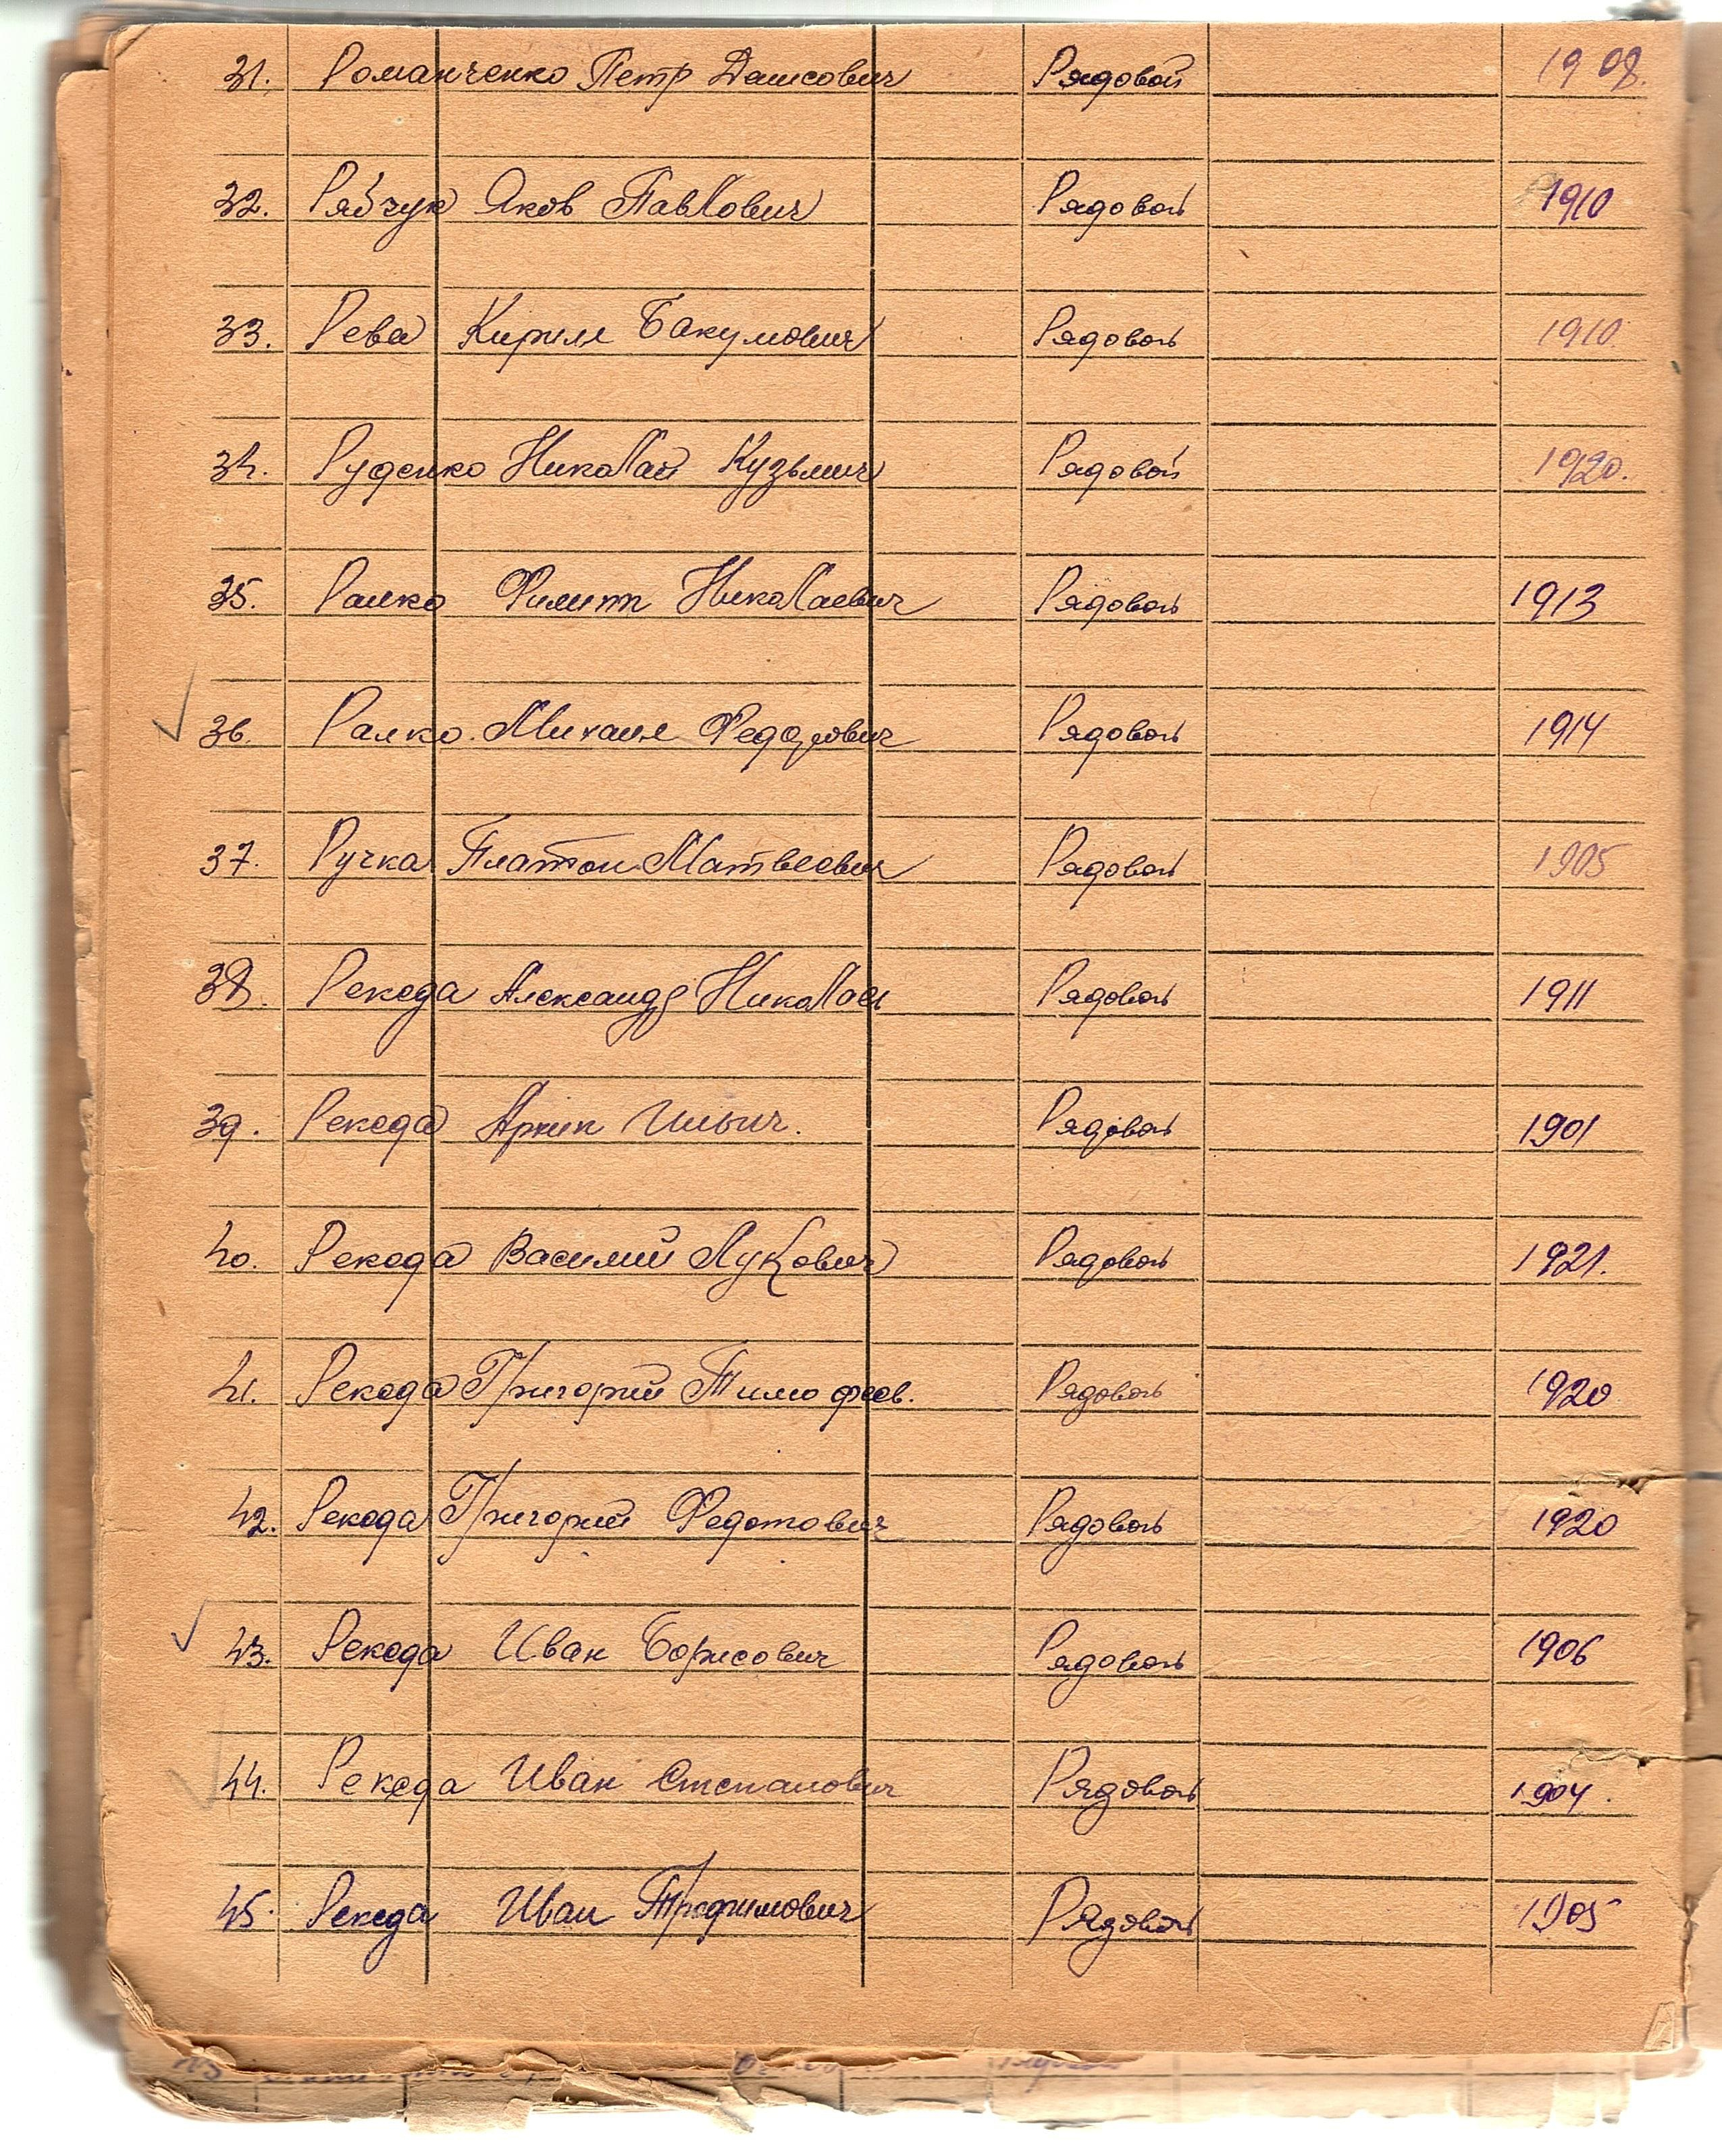 31. Романченко Петр Денисович Рядовой 1908.
32. Рябчук Яков Павлович Рядовой 1910
33. Рева Кирилл Бакумович Рядовой 1910
34. Руденко Николай Кузьмич Рядовой 1920.
35. Ралко Филипп Николаевич Рядовой 1913
36. Ралко Михаил Федорович Рядовой 1914
37. Ручка Платон Матвеевич Рядовой 1905
38. Рекеда Александр Николаев Рядовой 1911
39. Рекеда Архип Ильич. Рядовой 1901
40. Рекеда Василий Лукович Рядовой 1921.
41. Рекеда Григорий Тимофеев. Рядовой 1920
42. Рекеда Григорий Федотович Рядовой 1920
43. Рекеда Иван Борисович Рядовой 1906
44. Рекеда Иван Степанович Рядовой 1904.
45. Рекеда Иван Трофимович Рядовой 1905